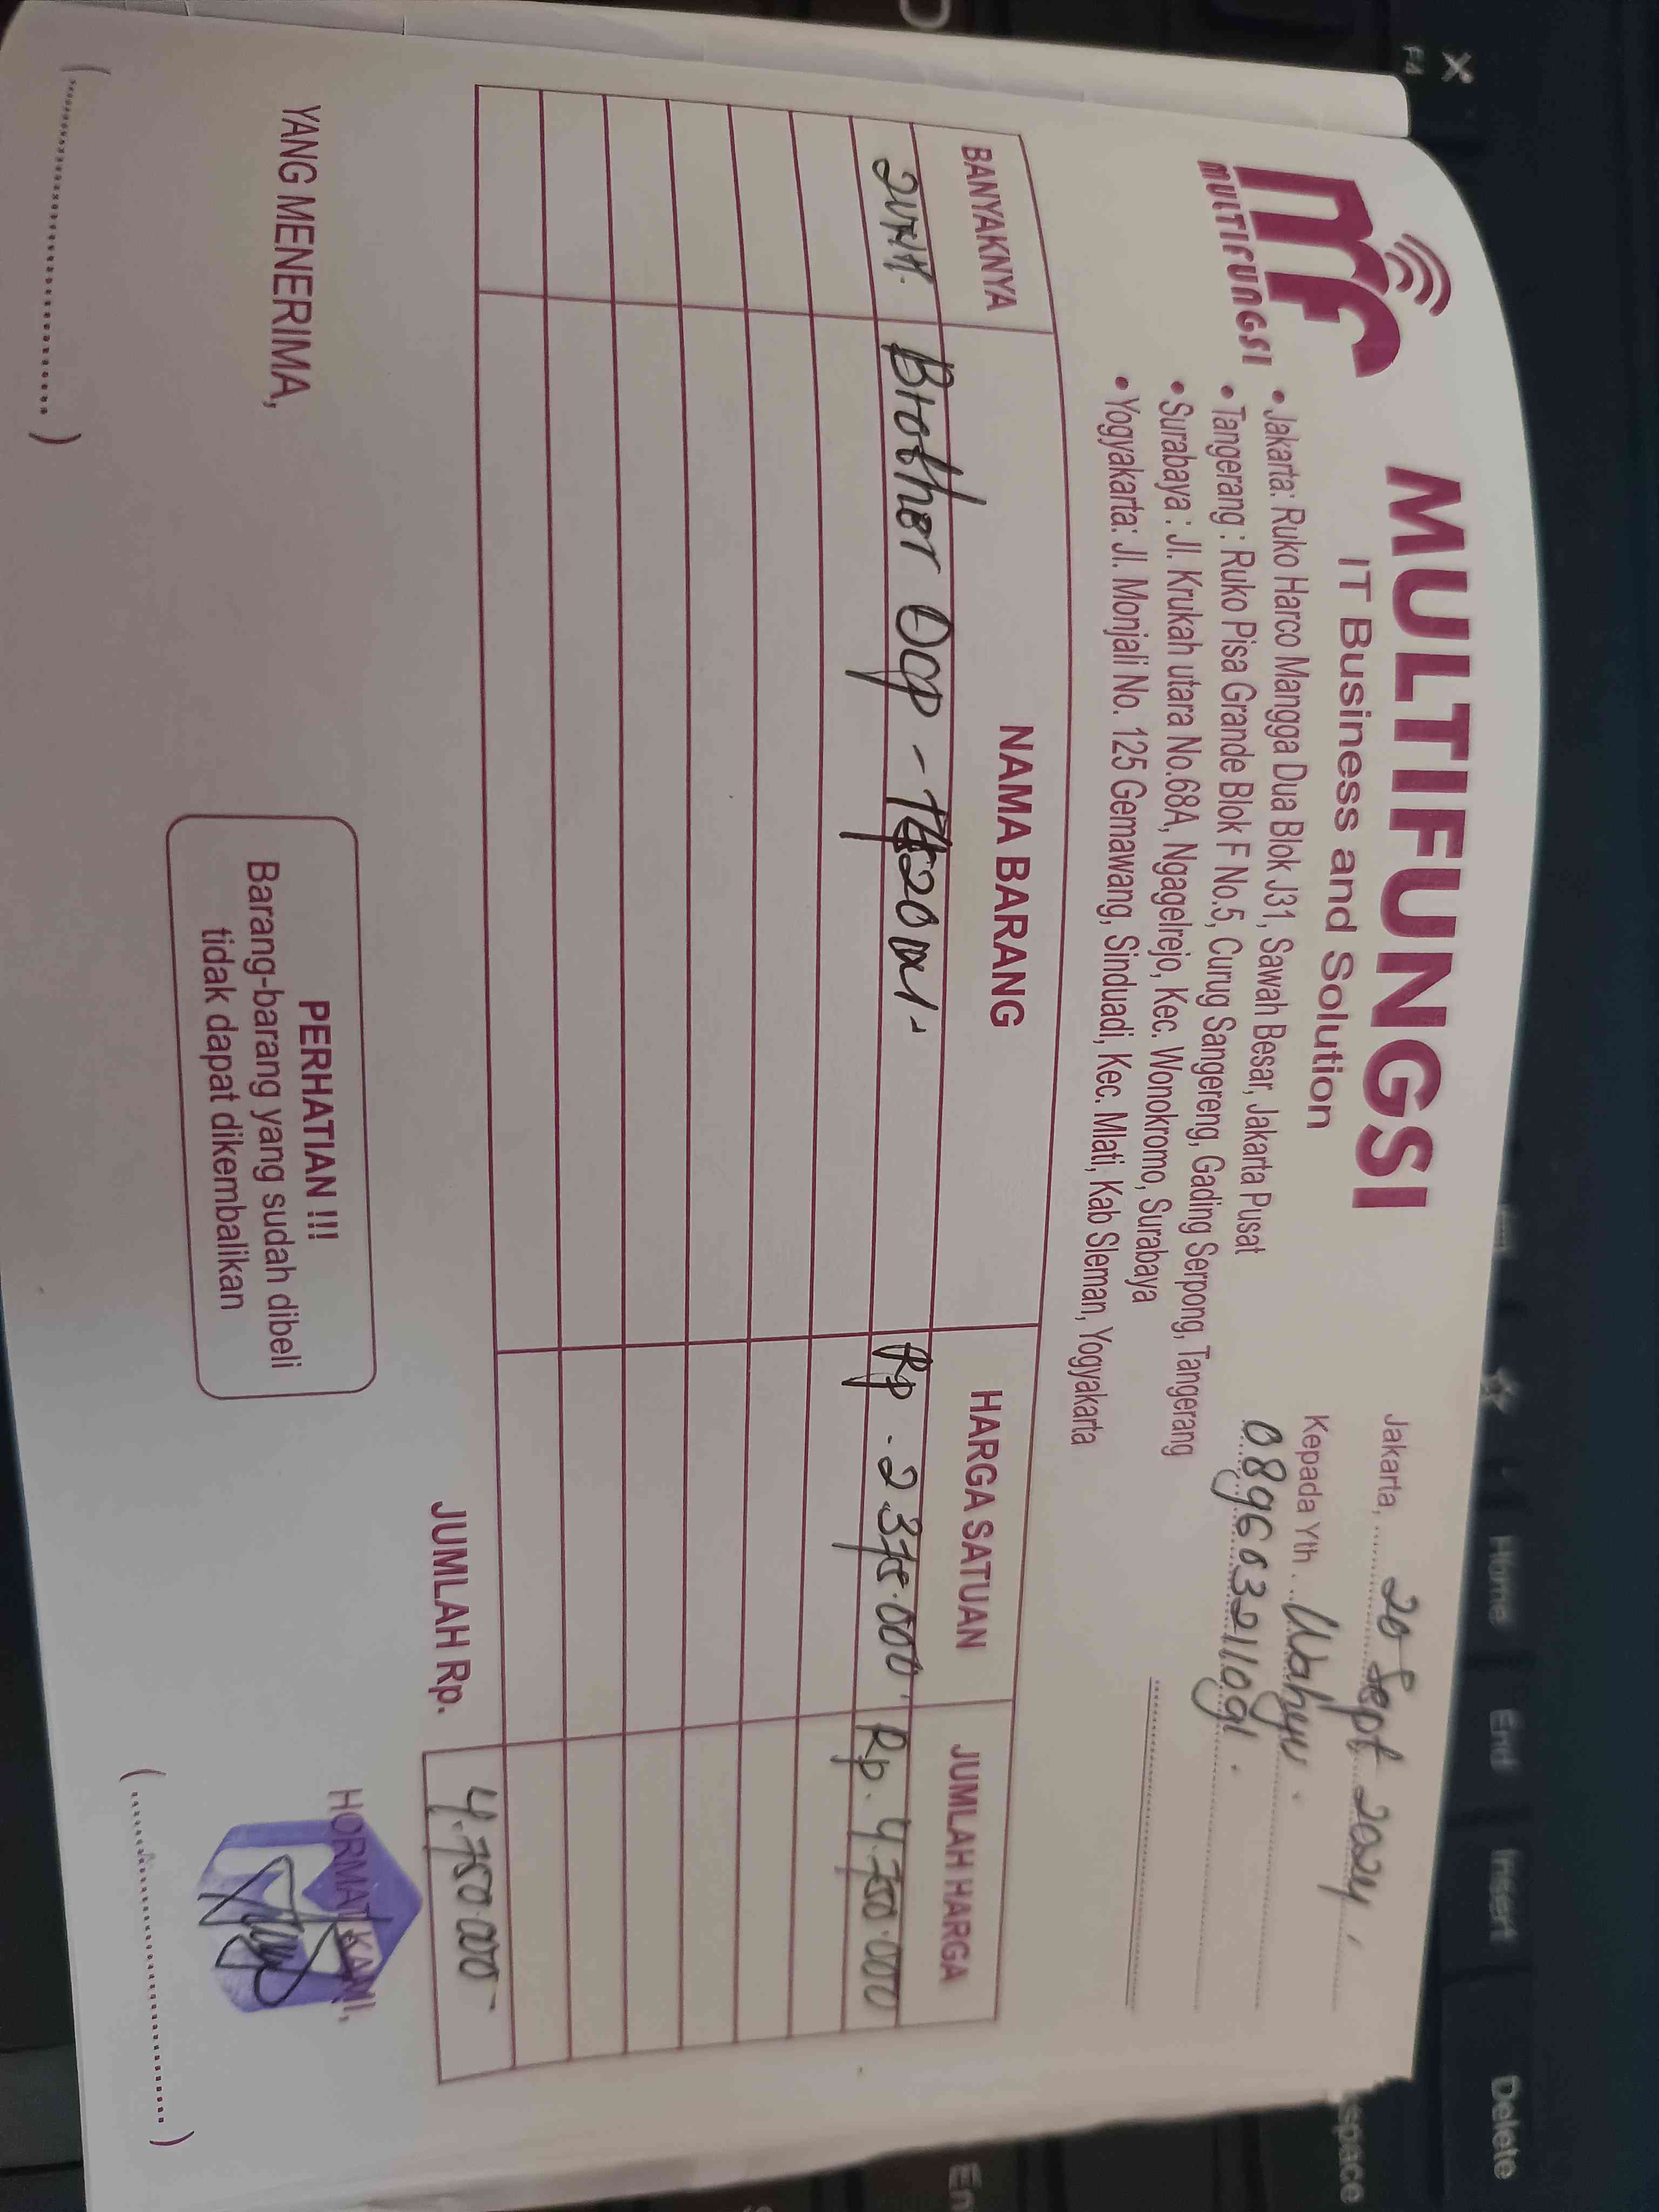 MULTIFUNGSI
MULTIFUNGSI
IT Business and Solution
• Jakarta: Ruko Harco Mangga Dua Blok J31, Sawah Besar, Jakarta Pusat
• Tangerang : Ruko Pisa Grande Blok F No.5, Curug Sangereng, Gading Serpong, Tangerang
• Surabaya : Jl. Krukah utara No.68A, Ngagelrejo, Kec. Wonokromo, Surabaya
• Yogyakarta: Jl. Monjali No. 125 Gemawang, Sinduadi, Kec. Mlati, Kab Sleman, Yogyakarta
Jakarta, 20 Sept 2024
Kepada Yth. Wahyu.
089603211091.
BANYAKNYA NAMA BARANG HARGA SATUAN JUMLAH HARGA
2 Unit. Brother Dcp - T420w Rp. 2.375.000, Rp. 4.750.000
JUMLAH Rp. 4.750.000-
YANG MENERIMA,
PERHATIAN !!!
Barang-barang yang sudah dibeli
tidak dapat dikembalikan
HORMAT KAMI,
F4
Home
End
Insert
Delete